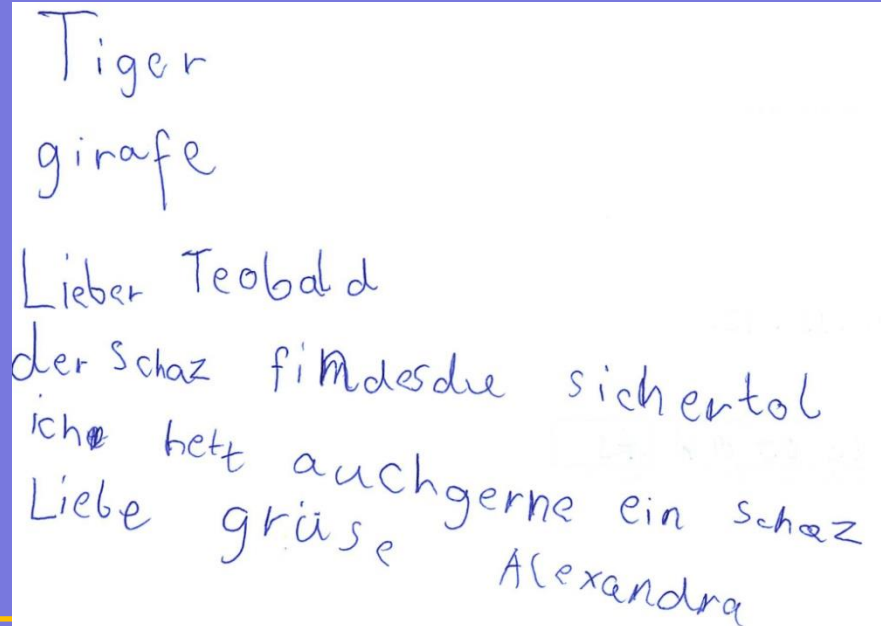 Tiger
girafe
Lieber Teobald
der Schaz findesdue sichertol
ich hett auchgerne ein schaz
Liebe grüse
Alexandra